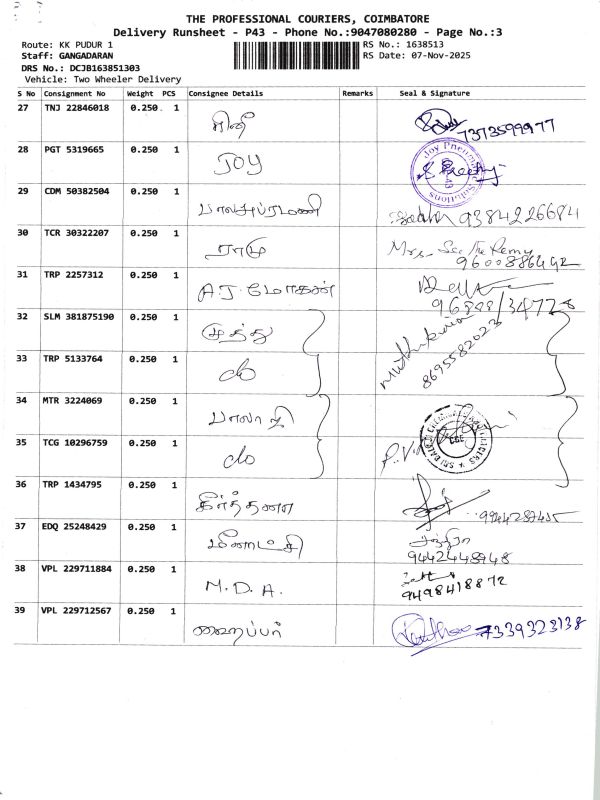 THE PROFESSIONAL COURIERS, COIMBATORE
Delivery Runsheet - P43 - Phone No.:9047080280 - Page No.:3
Route: KK PUDUR 1 RS No.: 1638513
Staff: GANGADARAN RS Date: 07-Nov-2025
DRS No.: DCJB163851303
Vehicle: Two Wheeler Delivery
S No Consignment No Weight PCS Consignee Details Remarks Seal & Signature
27 TNJ 22846018 0.250 1 மினி
7373599977
28 PGT 5319665 0.250 1 JOY
Joy Pneumatic Solutions
29 CDM 50382504 0.250 1 பாலசுப்ரமணி
9384226684
30 TCR 30322207 0.250 1 ராமு
Mrs.
31 TRP 2257312 0.250 1 A.J. மோகன்
32 SLM 381875190 0.250 1 முத்து
Muthukumar
8695582023
33 TRP 5133764 0.250 1 do
34 MTR 3224069 0.250 1 பாலாஜி
35 TCG 10296759 0.250 1 do
36 TRP 1434795 0.250 1 கீர்த்தனா
37 EDQ 25248429 0.250 1 மீனாட்சி
9442448948
38 VPL 229711884 0.250 1 M.D.A.
9498418872
39 VPL 229712567 0.250 1
7339323138